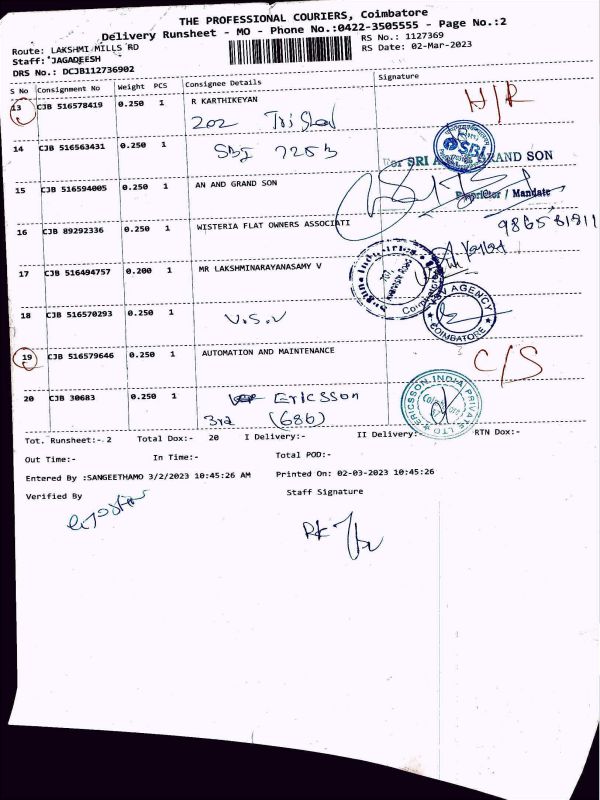 THE PROFESSIONAL COURIERS, Coimbatore
Delivery Runsheet - MO - Phone No.:0422-3505555 - Page No.:2
Route: LAKSHMI MILLS RD
RS No.: 1127369
Staff: JAGADEESH
RS Date: 02-Mar-2023
DRS No.: DCJB112736902
S No Consignment No Weight PCS Consignee Details Signature
13 CJB 516578419 0.250 1 R KARTHIKEYAN H/R
202
14 CJB 516563431 0.250 1 SBI 7253
SBI
For SRI GRAND SON
15 CJB 516594005 0.250 1 AN AND GRAND SON
Proprietor / Mandate
16 CJB 89292336 0.250 1 WISTERIA FLAT OWNERS ASSOCIATI
17 CJB 516494757 0.200 1 MR LAKSHMINARAYANASAMY V
18 CJB 516570293 0.250 1
V.S.V
VSV AGENCY
COIMBATORE
19 CJB 516579646 0.250 1 AUTOMATION AND MAINTENANCE C/S
20 CJB 30683 0.250 1 Ericsson
3rd (686)
ERICSSON INDIA PRIVATE LTD
Coimbatore
Tot. Runsheet:- 2 Total Dox:- 20 I Delivery:- II Delivery:- RTN Dox:-
Out Time:- In Time:- Total POD:-
Entered By :SANGEETHAMO 3/2/2023 10:45:26 AM Printed On: 02-03-2023 10:45:26
Verified By Staff Signature